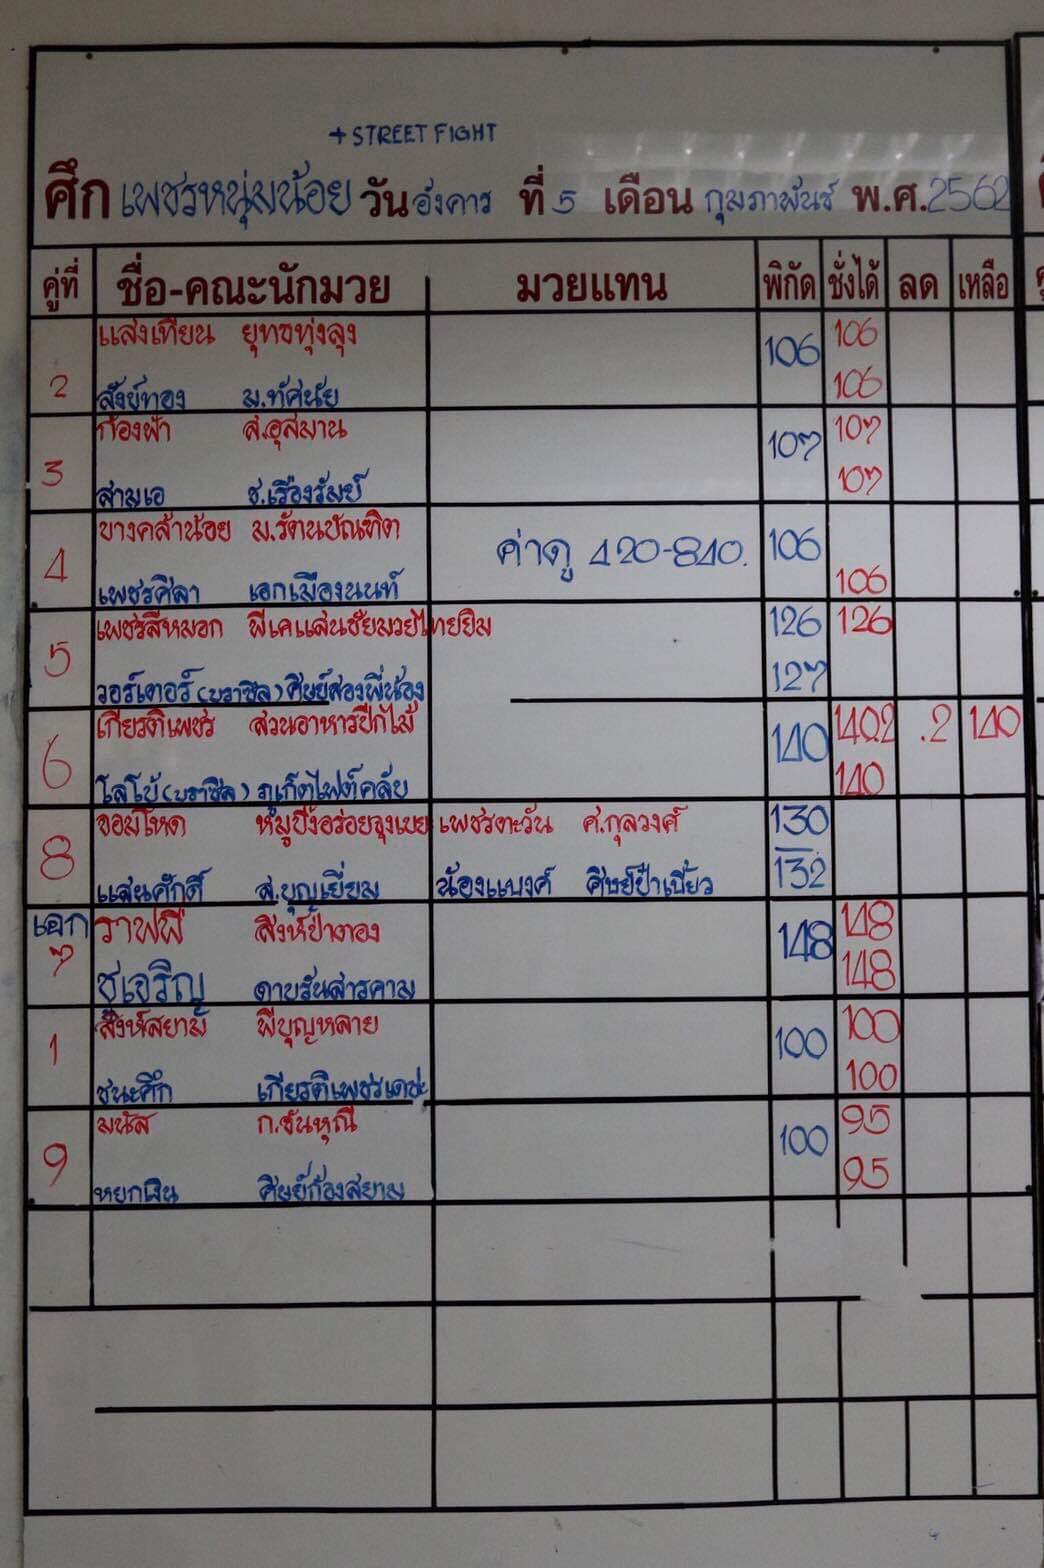 + STREET FIGHT
ศึก เพชรหนุ่มน้อย วัน อังคาร ที่ 5 เดือน กุมภาพันธ์ พ.ศ. 2562
คู่ที่ ชื่อ-คณะนักมวย มวยแทน พิกัด ชั่งได้ ลด เหลือ
แสงเทียน ยุทธทุ่งลุง 106
2 106
สังข์ทอง ม.ทัศนัย 106
ก้องฟ้า ส.อุสมาน 107
3 107
สามเอ ช.เรืองรัมย์ 107
บางคล้าน้อย ม.รัตนบัณฑิต
4 ค่าดู 120-840. 106
เพชรศิลา เอกเมืองนนท์ 106
เพชรสีหมอก พีเคแสนชัยมวยไทยยิม 126 126
5
วอร์เตอร์ (บราซิล) ศิษย์สองพี่น้อง 127
เกียรติเพชร สวนอาหารปีกไม้ 140.2 .2 140
6 140
โลโบ้ (บราซิล) ภูเก็ตไฟต์คลับ 140
จอมโหด หมูปิ้งอร่อยจุงเบย เพชรตะวัน ศ.กุลวงศ์ 130
8
แสนศักดิ์ ส.บุญเยี่ยม น้องแบงค์ ศิษย์ป๋าเบี้ยว 132
เอก ราฟฟี่ สิงห์ป่าตอง 148
7 148
ชูเจริญ ดาบรันสารคาม 148
สิงห์สยาม พีบุญหลาย 100
1 100
ชนะศึก เกียรติเพชรเดชะ 100
มนัส ก.ขันหุณี 95
9 100
หยกเงิน ศิษย์ก้องสยาม 95